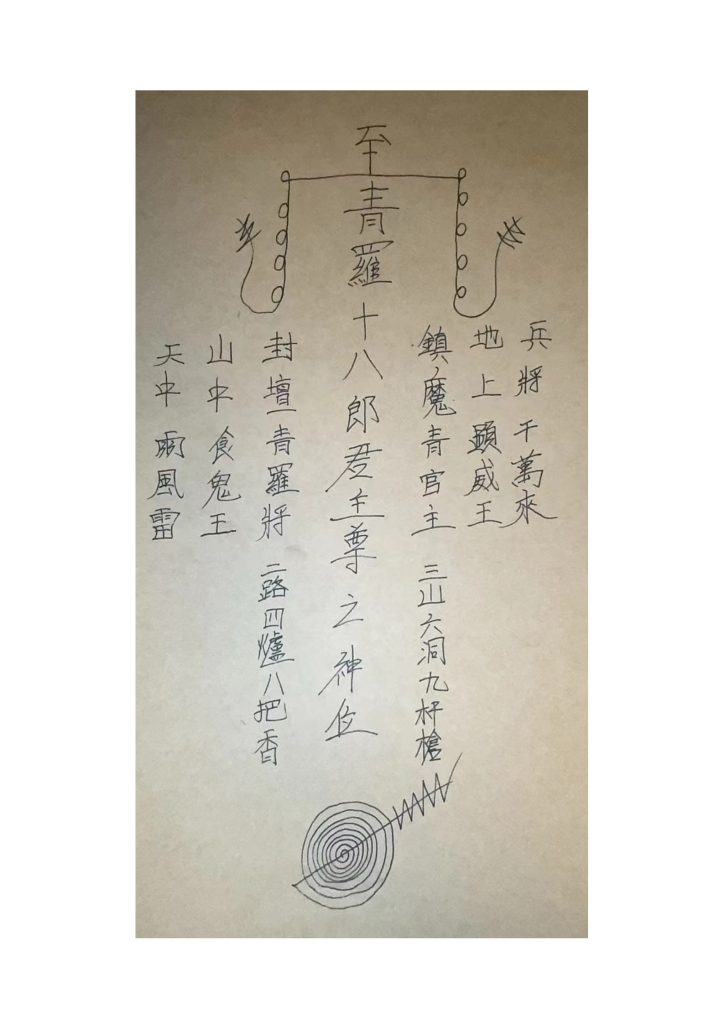 兵將千萬來
地上顯威王
鎮魔青官主 三山六洞九杆槍
至青羅十八郎君主尊之神位
封壇青羅將 二路四爐八把香
山中食鬼王
天中雨風雷